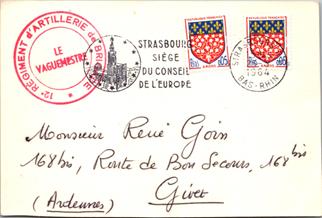 12e RÉGIMENT d'ARTILLERIE de BRIGADE
LE
VAGUEMESTRE
STRASBOURG
SIÈGE
DU CONSEIL
DE L'EUROPE
REPUBLIQUE FRANÇAISE
0,05
AMIENS
REPUBLIQUE FRANÇAISE
0,05
STRASBOURG
1964
BAS-RHIN
Monsieur René Goin
168 bis, Route de Bon Secours, 168 bis
Givet
(Ardennes)